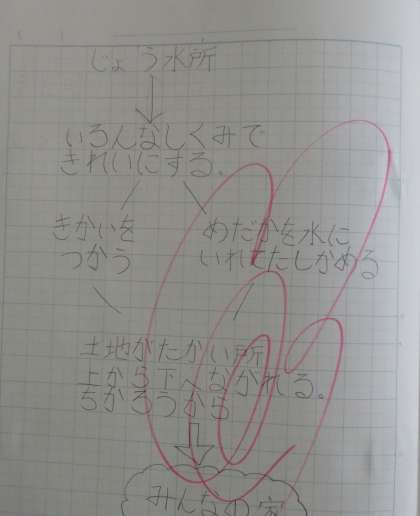 じょう水所
いろんなしくみで
きれいにする。
きかいを
つかう
めだかを水に
いれてたしかめる
土地がたかい所
上から下へながれる。
ちかろうから
みんなの家